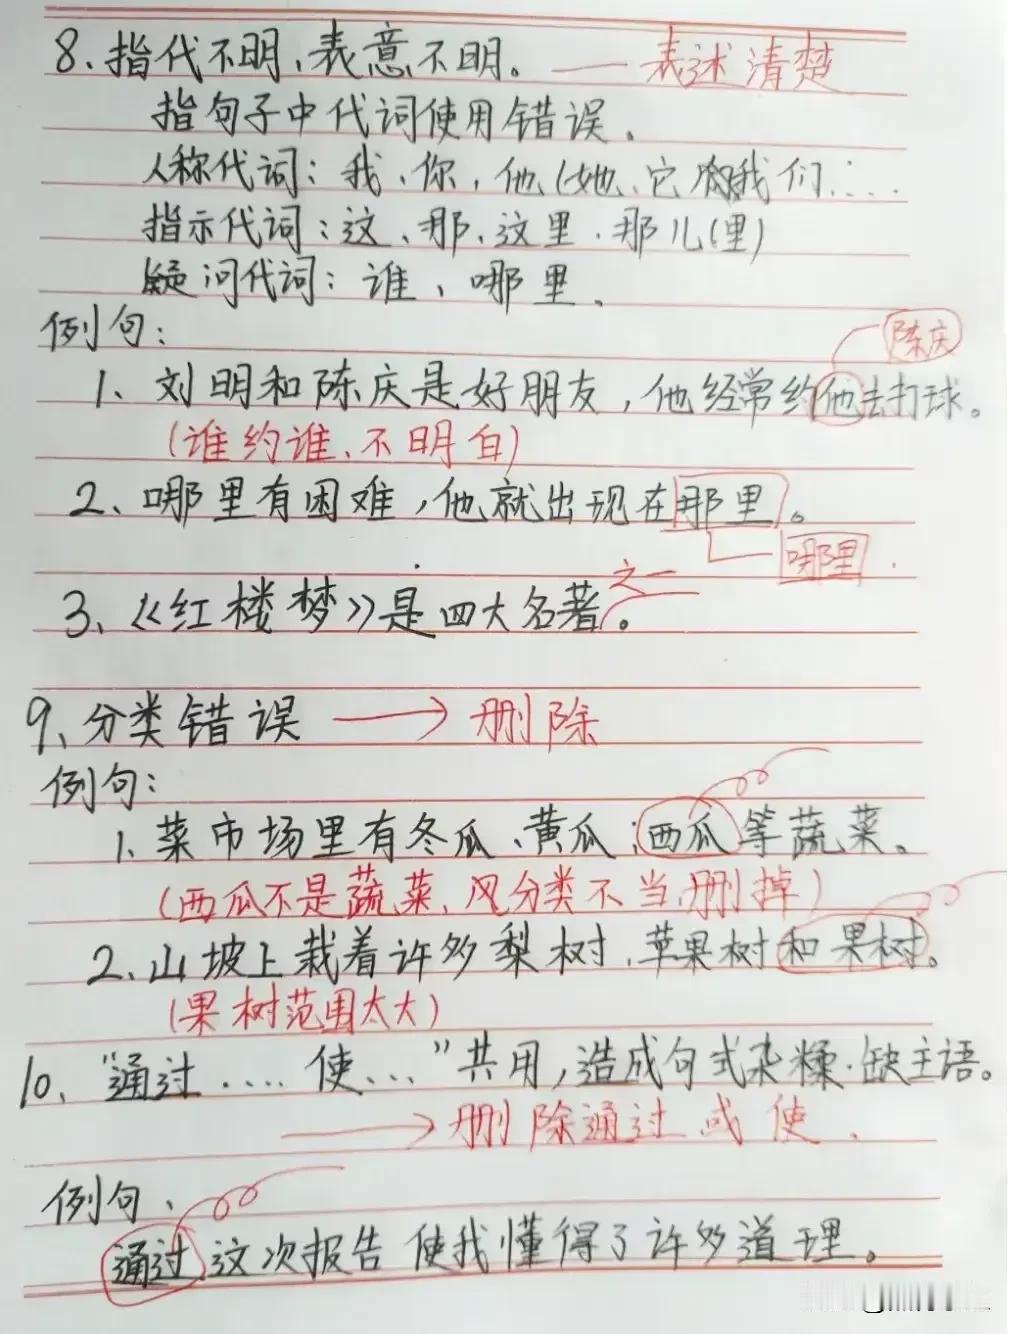 8、指代不明、表意不明。—— 表述清楚
指句子中代词使用错误。
人称代词：我、你，他(她、它 我们……
指示代词：这、那、这里、那儿(里)
疑问代词：谁、哪里、
例句：
陈庆
1、刘明和陈庆是好朋友，他经常约他去打球。
(谁约谁、不明白)
2、哪里有困难，他就出现在那里。
哪里
之一
3、《红楼梦》是四大名著。
9、分类错误 → 删除
例句：
1、菜市场里有冬瓜、黄瓜、西瓜等蔬菜。
(西瓜不是蔬菜、风分类不当,删掉)
2、山坡上栽着许多梨树、苹果树和果树。
(果树范围太大)
10、"通过……使…"共用，造成句式杂糅·缺主语。
→ 删除通过或使、
例句、
通过这次报告使我懂得了许多道理。